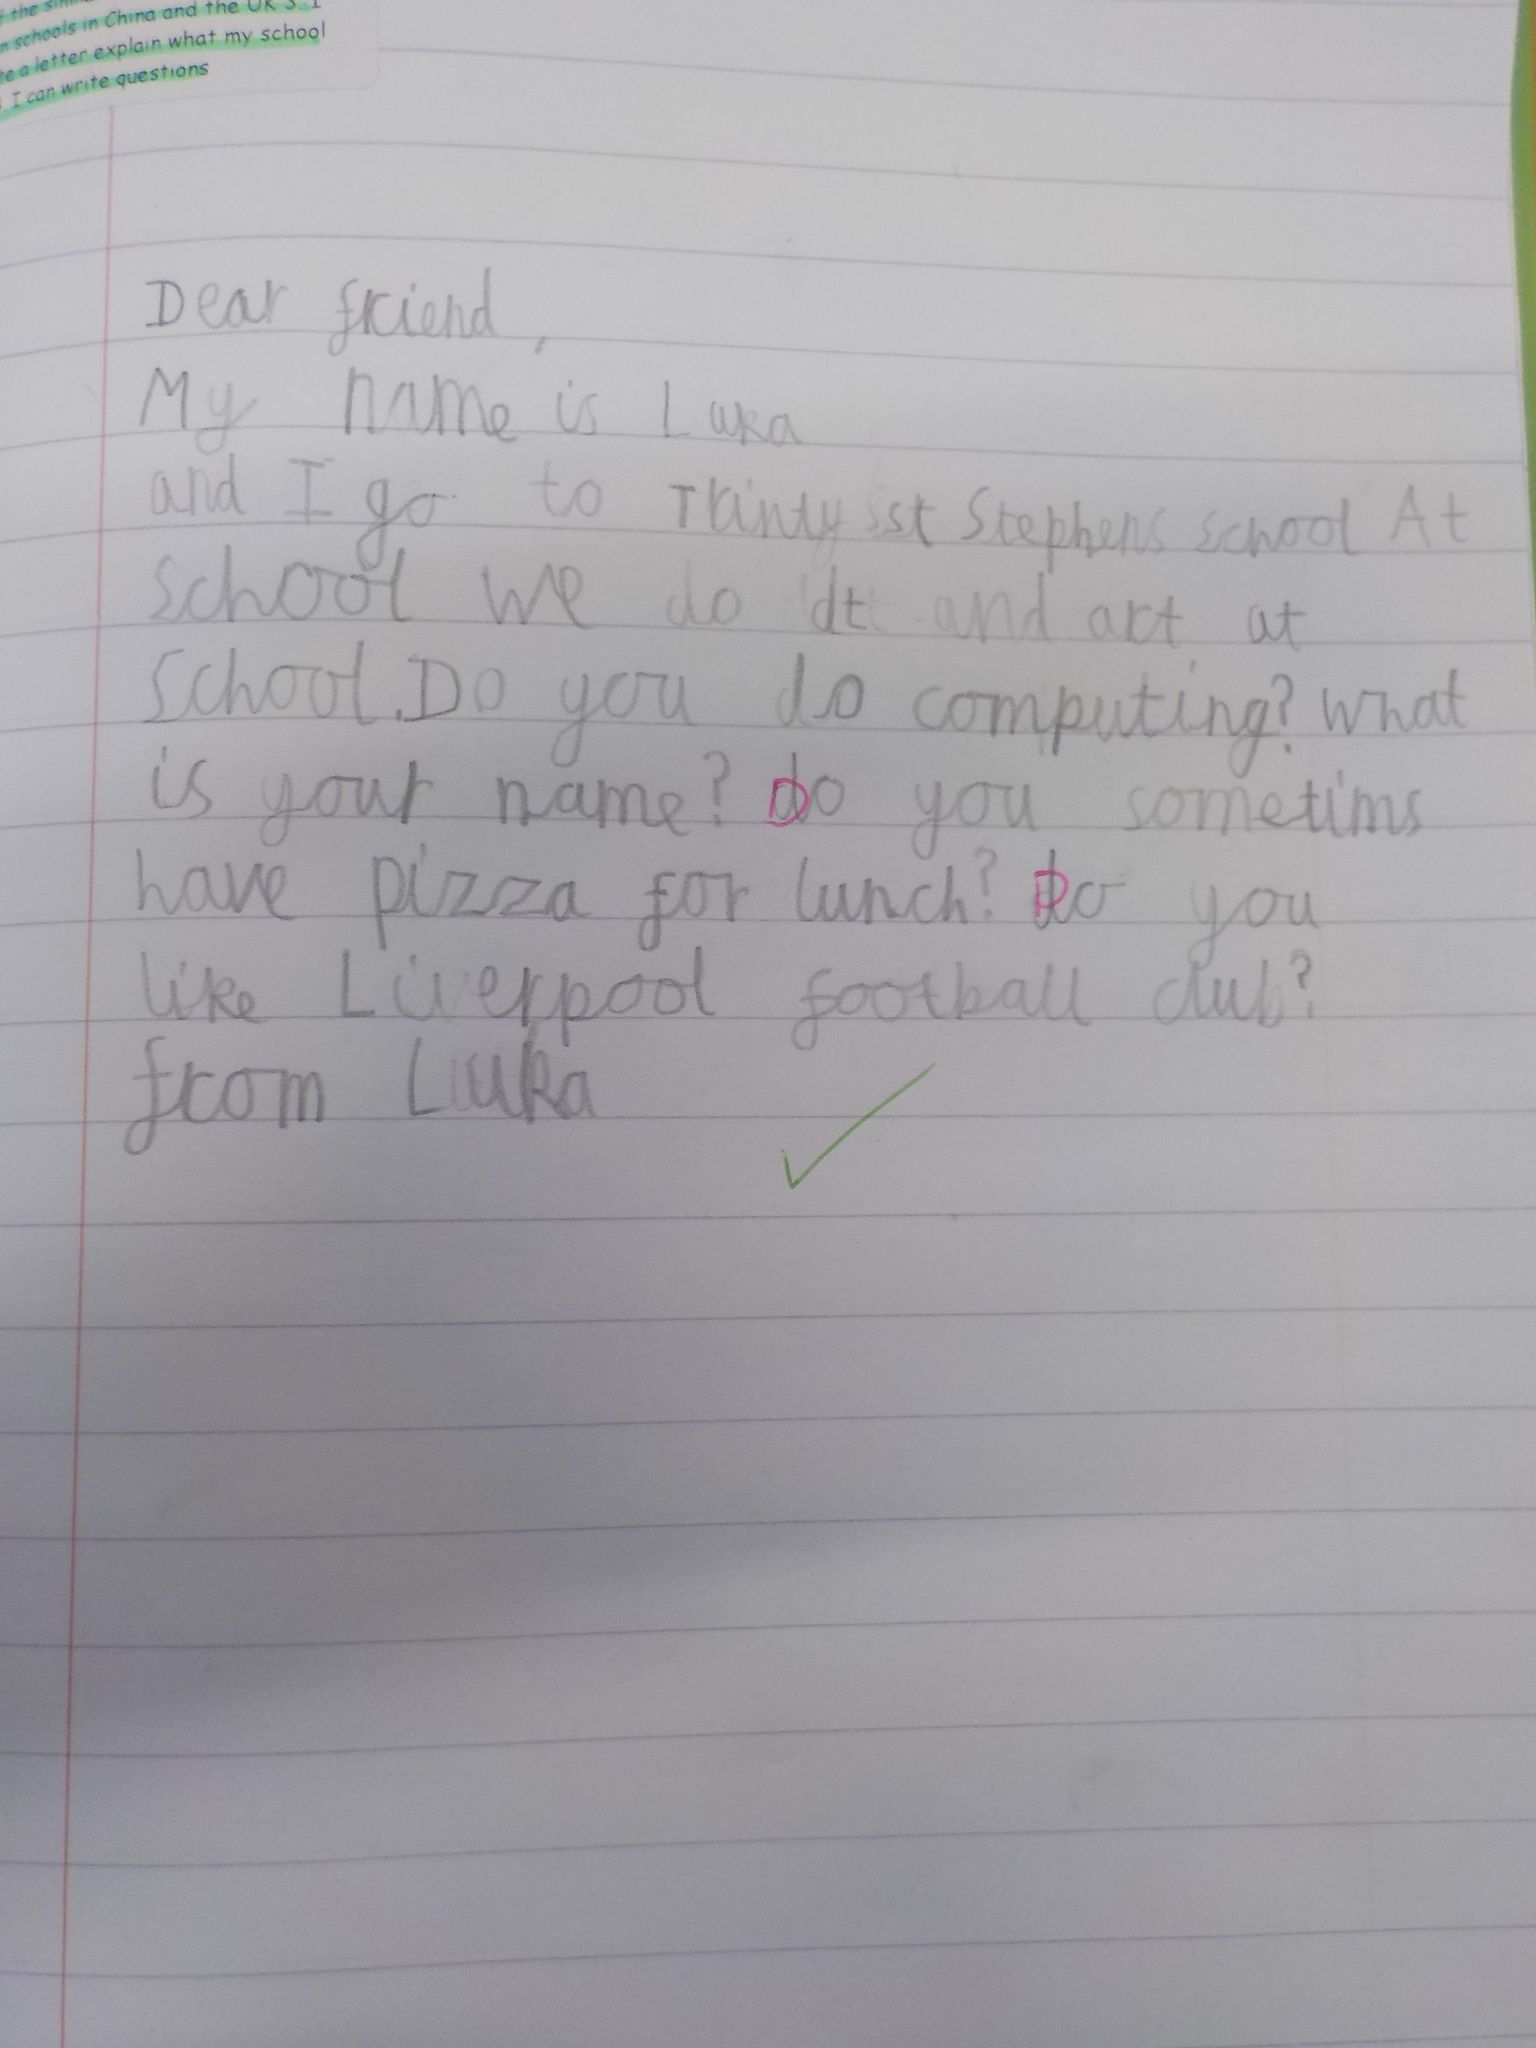 the
n schools in China and the UK 3. I
te a letter explain what my school
I can write questions
Dear friend,
My name is Luka
and I go to Trinty sst Stephens school At
school we do dt and art at
school. Do you do computing? What
is your name? Do you sometims
have pizza for lunch? Do you
like Liverpool football club?
from Luka